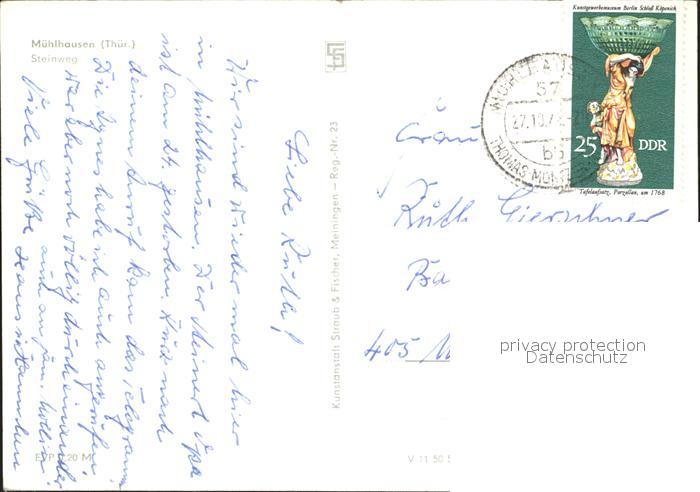 Mühlhausen (Thür.)
Steinweg
Liebe Ruth!
Wir sind wieder mal hier
in Mühlhausen. Der Meinert Opa
ist am 24. gestorben. Kurz nach
deinem Anruf kam das Telegramm
Die Agnes habe ich auch angerufen,
war aber noch völlig durcheinander
Viele Grüße auch an
EVP 0,20 M
Kunstanstalt Straub & Fischer, Meiningen – Reg.-Nr. 23
V 11 50
Kunstgewerbemuseum Berlin Schloß Köpenick
25 DDR
Tafelaufsatz, Porzellan, um 1768
MÜHLHAUSEN
57
27.10.7
THOMAS-MÜNTZ
Frau
Ruth Gierschner
Ba
405 M
privacy protection
Datenschutz